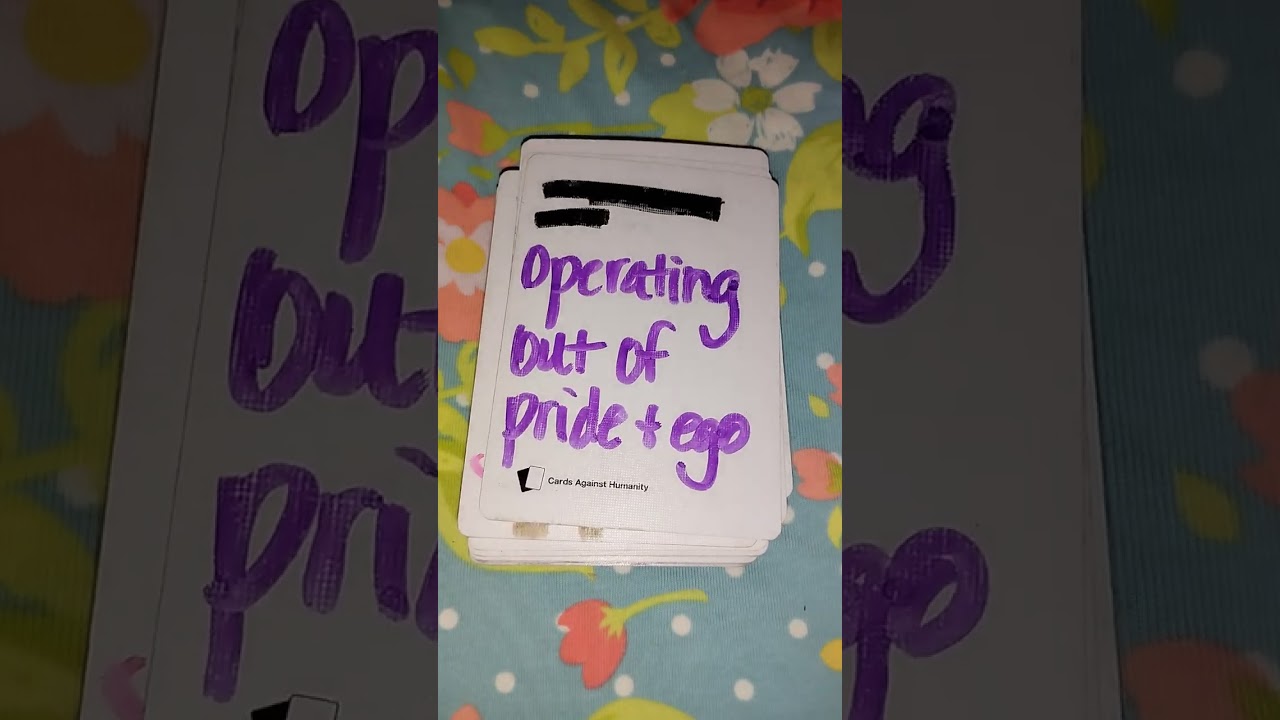 Operating
out of
pride + ego
Cards Against Humanity